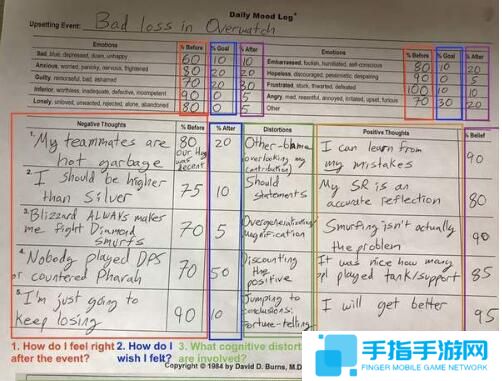 Daily Mood Log
Upsetting Event: Bad loss in Overwatch
Emotions % Before % Goal % After
Sad, blue, depressed, down, unhappy 60 10 10
Anxious, worried, panicky, nervous, frightened 80 20 20
Guilty, remorseful, bad, ashamed 70 20 30
Inferior, worthless, inadequate, defective, incompetent 90 0 5
Lonely, unloved, unwanted, rejected, alone, abandoned 80 0 5
Emotions % Before % Goal % After
Embarrassed, foolish, humiliated, self-conscious 80 10 20
Hopeless, discouraged, pessimistic, despairing 90 0 5
Frustrated, stuck, thwarted, defeated 100 10 10
Angry, mad, resentful, annoyed, irritated, upset, furious 70 30 20
Other
Negative Thoughts % Before % After Distortions Positive Thoughts % Belief
1. My teammates are
hot garbage
80
our Hog
was
decent
20
Other-blame
(overlooking my
contribution)
I can learn from
my mistakes
90
2. I should be higher
than Silver
75
10
Should
statements
My SR is an
accurate reflection
80
3. Blizzard ALWAYS makes
me fight Diamond
smurfs
70
5
Overgeneralizing/
magnification
Smurfing isn't actually
the problem
90
4. Nobody played DPS
or countered Pharah
70
50
Discounting
the
positive
It was nice how many
ppl played tank/support
85
5. I'm just going to
keep losing
90
10
Jumping to
conclusions:
Fortune-telling
I will get better
95
1. How do I feel right 2. How do I 3. What cognitive distort
after the event? wish I felt? are involved?
Copyright © 1984 by David D. Burns, M.D.
手指手游网
FINGER MOBILE GAME NETWORK